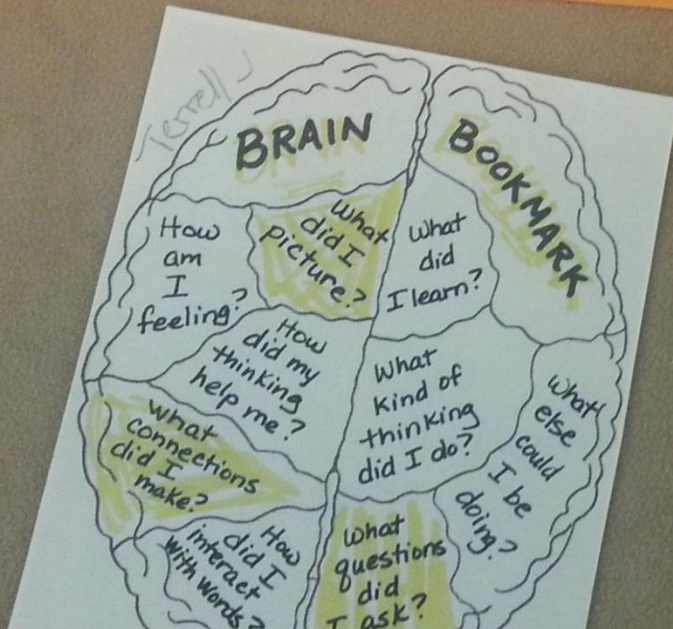 Terrell J
BRAIN
BOOKMARK
How
am
I
feeling?
What
did I
picture?
What
did
I learn?
How
did my
thinking
help me?
What
kind of
thinking
did I do?
What
else
could
I be
doing?
What
connections
did I
make?
How
did I
interact
with words?
What
questions
did
I ask?